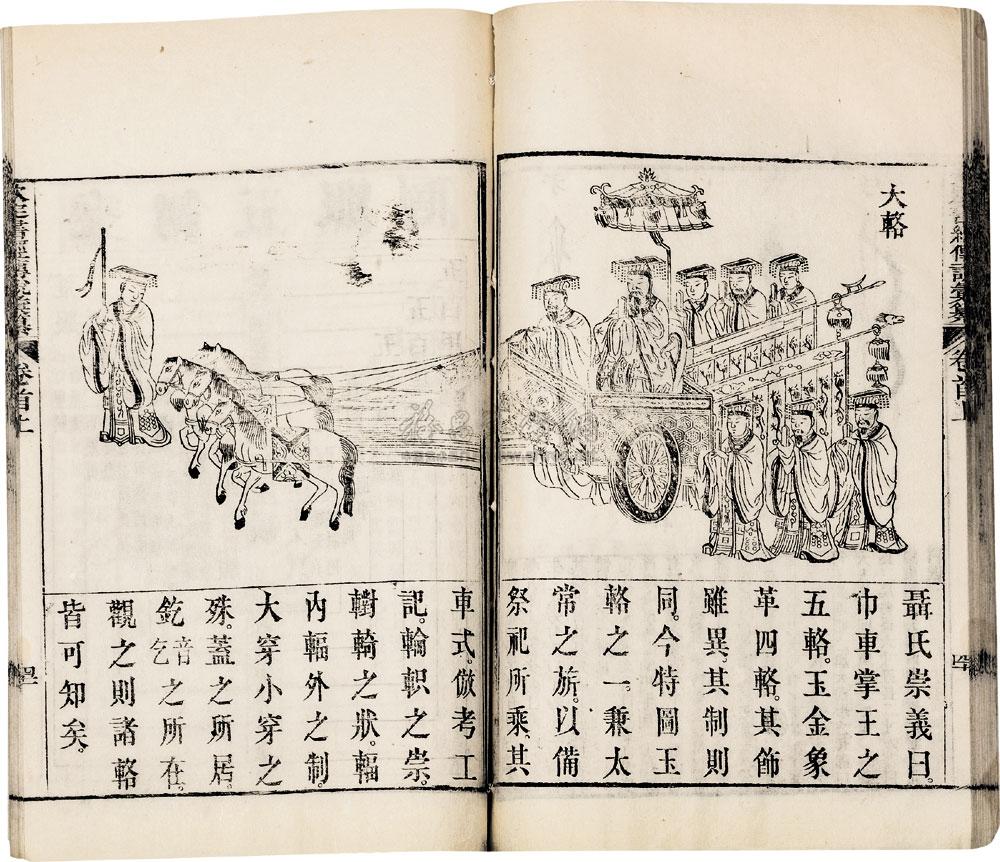 大輅
聶氏崇義曰。
巾車掌王之
五輅。玉金象
革四輅。其飾
雖異。其制則
同。今特圖玉
輅之一。兼太
常之旂。以備
祭祀所乘。其
車式。倣考工
記。輪軹之崇。
轛輢之狀。輻
內輻外之制。
大穿小穿之
殊。蓋之所居。
釳音乞之所在。
觀之則諸輅
皆可知矣。